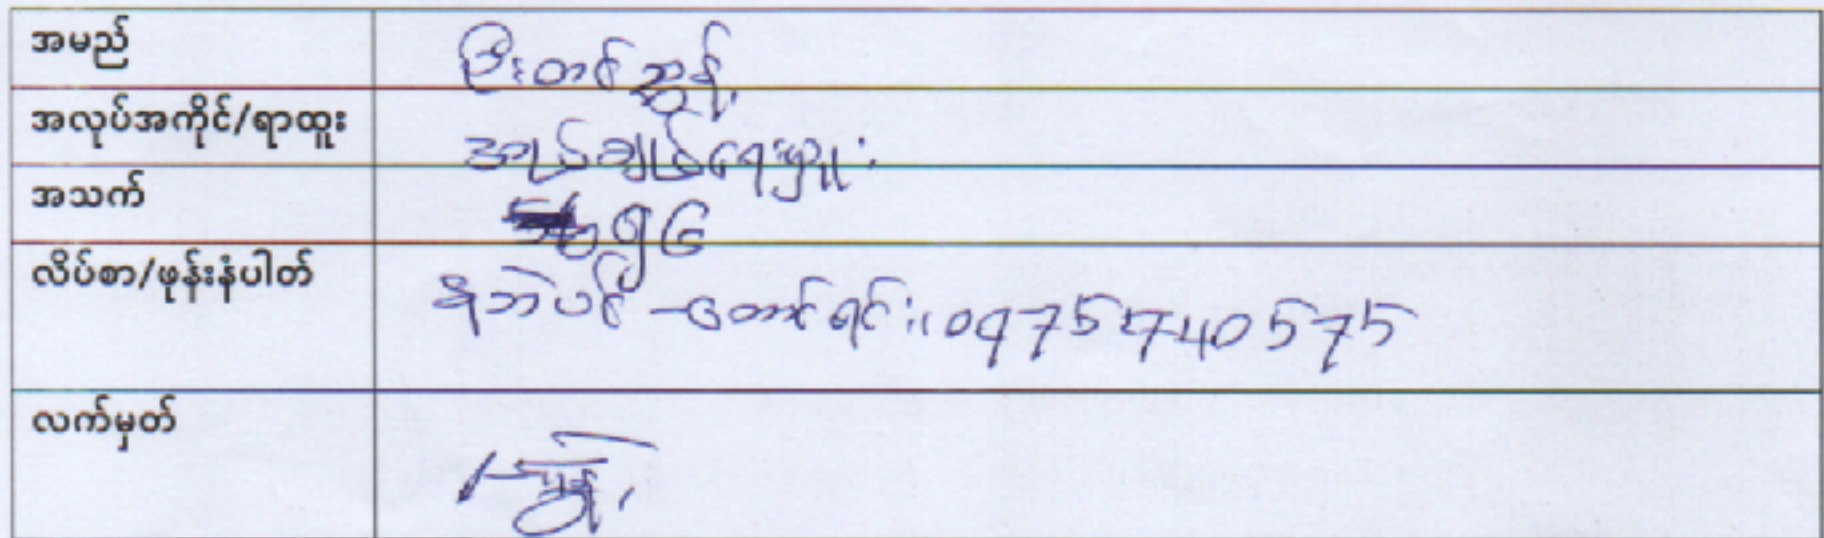 အမည် ဦးတင်ညွန့်
အလုပ်အကိုင်/ရာထူး အုပ်ချုပ်ရေးမှူး
အသက် ၅၆
လိပ်စာ/ဖုန်းနံပါတ် နဘဲပင် - တောင်ရင်း၊ 09754740575
လက်မှတ်